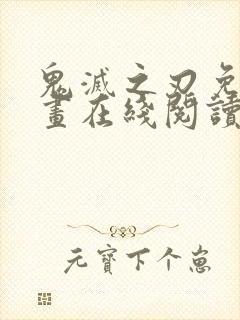 鬼滅之刃免
畫在綫閱讀
元寶下个崽